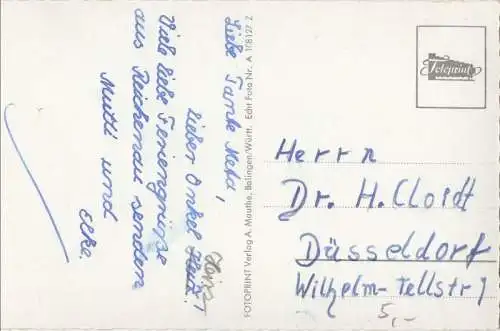 Liebe Tante Meta,
Lieber Onkel Heinz!
Viele liebe Feriengrüße
aus Reichenau senden
Mutti und
Elke.
FOTOPRINT Verlag A. Mauthe, Balingen/Württ. Echt Foto Nr. A 1/8127 Z
Fotoprint
Herrn
Dr. H. Cloidt
Düsseldorf
Wilhelm-Tellstr 1
5,-